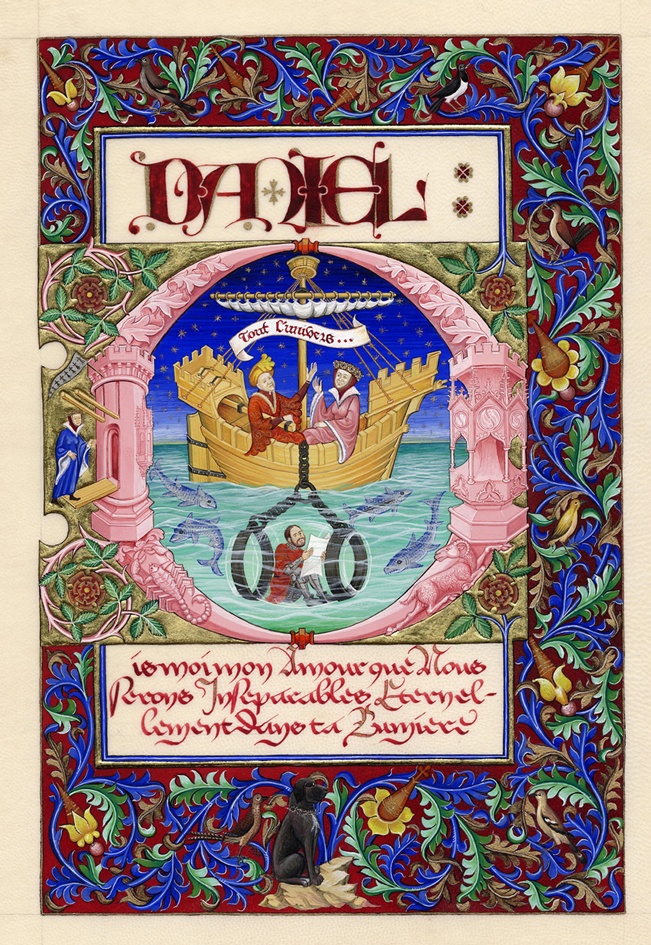 DANIEL :
Tout L'univers...
is moi mon Amour que Nous
Serons Inseparables Eternel-
lement dans ta Lumiere